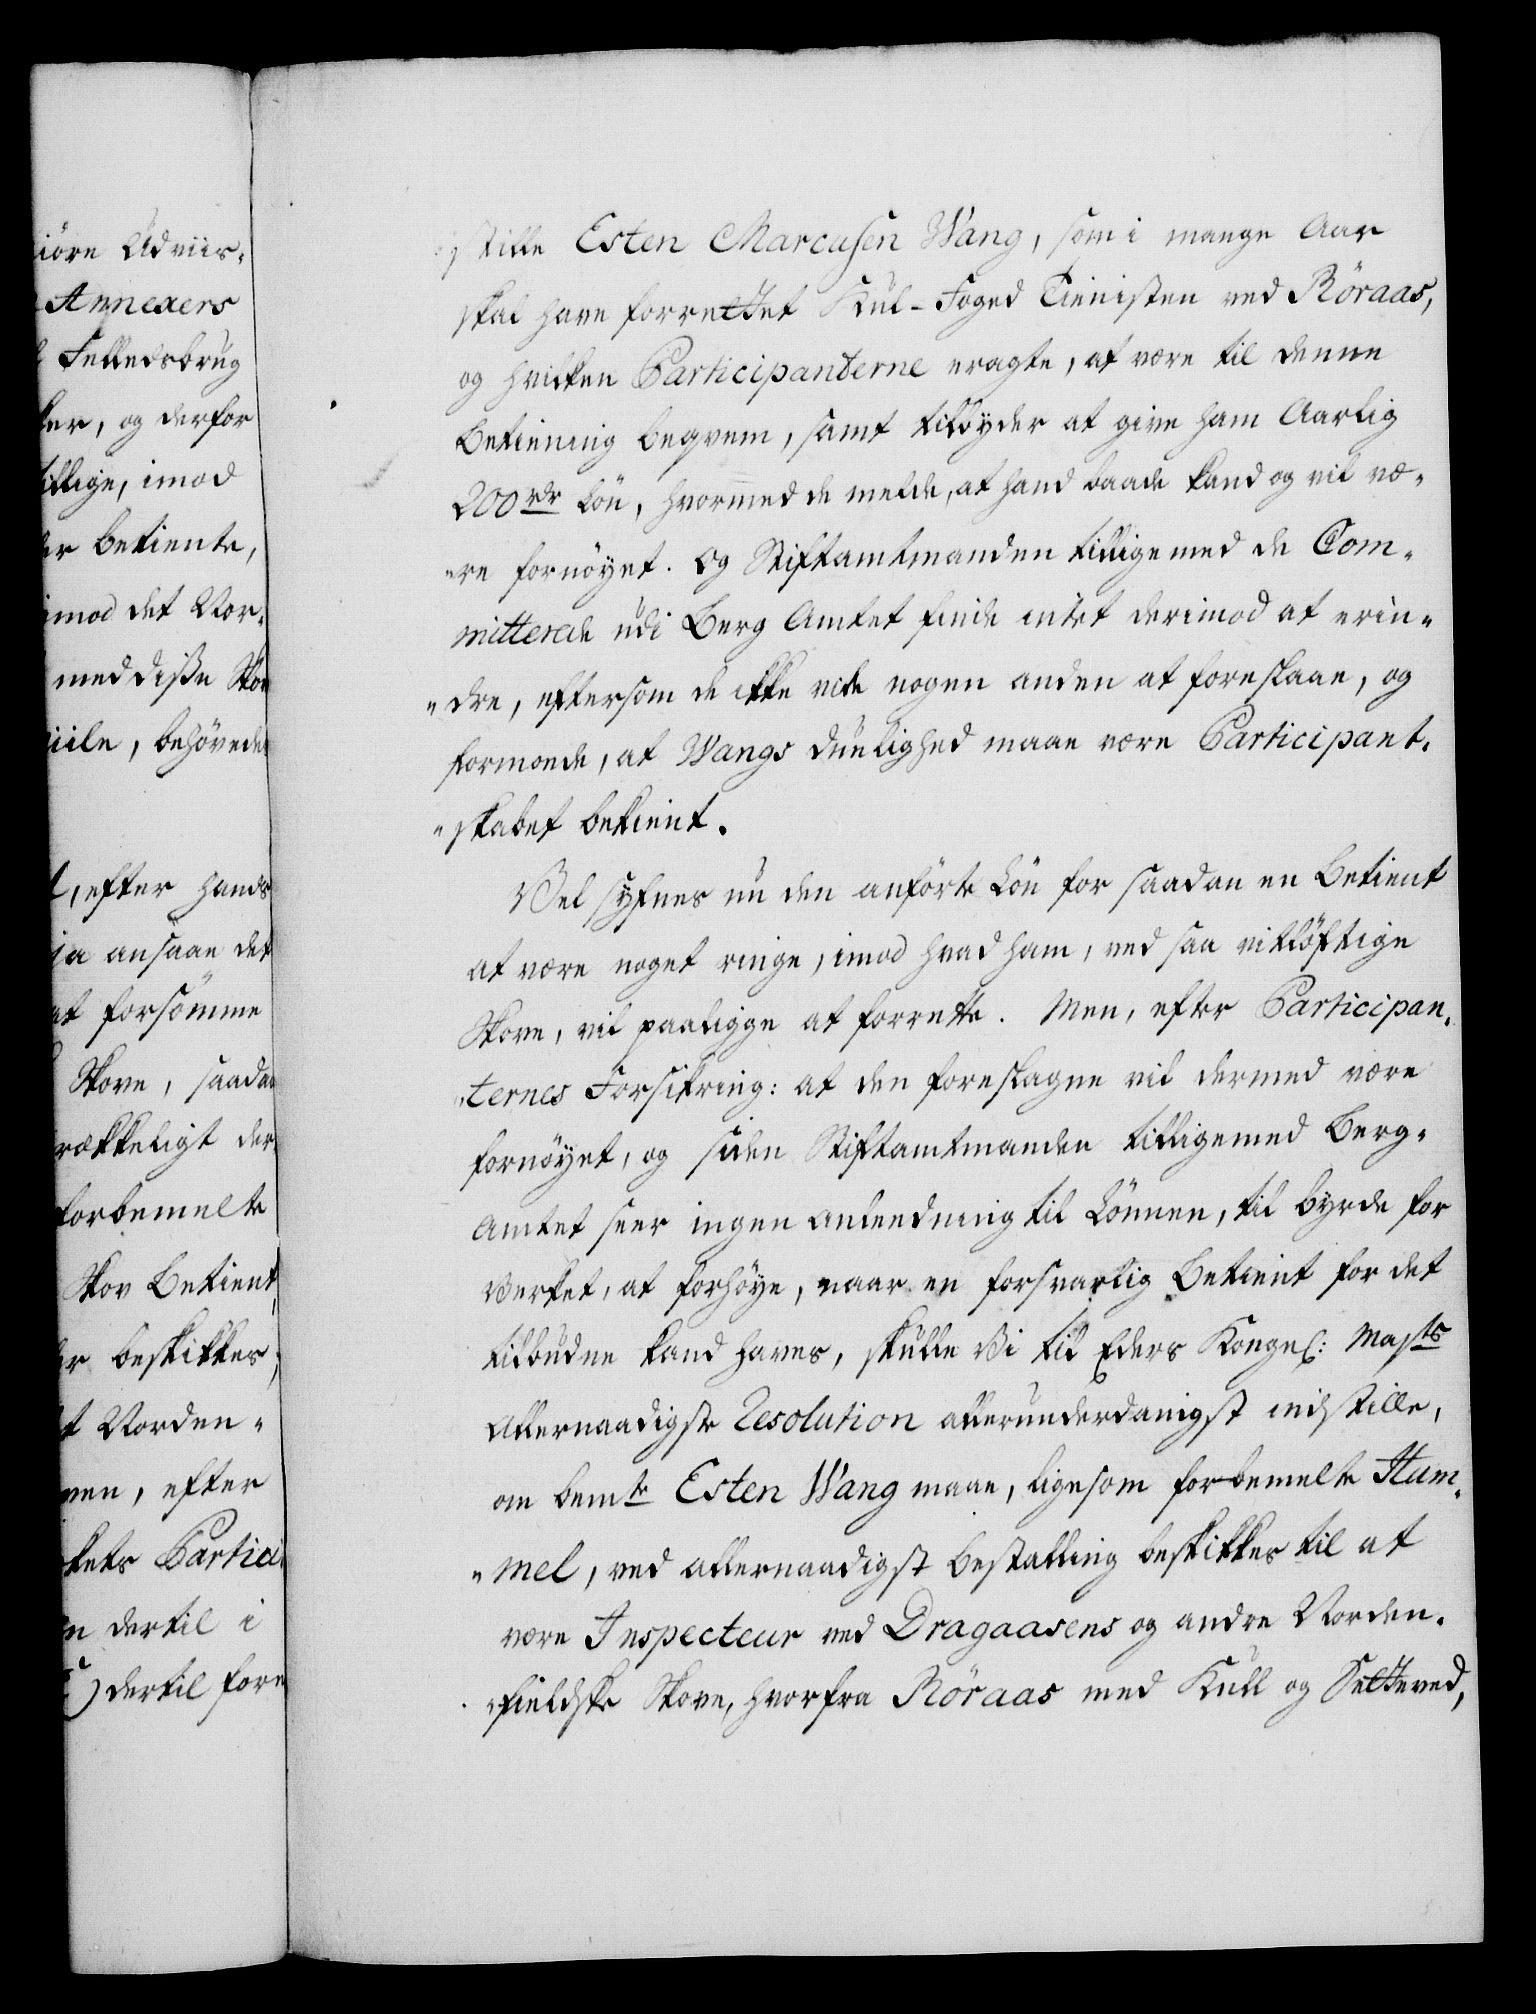 iöre Udviis-
Annexers
Fellesbrug
ker, og derfor
tillige, imod
der betiente,
imod det Nor-
med disse Skov
iile, behövede
, efter hands
ja ansaae det
at forsömme
Skove, saadan
rækkeligt der
forbemelte
Skov Betient,
er beskikkes;
t Norden-
men, efter
kets Partici
n dertil i
) dertil fore
stille Esten Marcusen Wang, som i mange Aar
skal have forrettet Kul-Foged Tienisten ved Röraas,
og hvilken Participanterne eragte, at være til denne
betiening beqvem, samt tilbyder at give ham Aarlig
200 rdr Lön, hvormed de melde, at hand baade kand og vil væ-
-re fornöyet. Og Stiftamtmanden tilligemed de Com-
mitterede udi Berg Amtet finde intet derimod at erin-
-dre, eftersom de ikke vide nogen anden at foreslaae, og
formoede, at Wangs duelighed maae være Participant-
-skabet bekient.
Vel syfnes nu den anförte Lön for saadan en Betient
at være noget ringe, imod hvad ham, ved saa vitlöftige
Skove, vil paaligge at forrette. Men, efter Participan-
-ternes Forsikring: at den foreslagne vil dermed være
fornöyet, og siden Stiftamtmanden tilligemed Berg-
Amtet seer ingen anleedning til Lönnen, til byrde for
Verket, at forhöye, naar en forsvarlig Betient for det
tilbudne kand haves, skulle Vi til Eders Kongel: Majts
Allernaadigste Resolution allerunderdanigst indstille,
om bemte Esten Wang maae, ligesom forbemelte Hum-
-mel, ved allernaadigst bestalling beskikkes til at
være Inspecteur ved Dragaasens og andre Norden-
-fieldske Skove, hvorfra Röraas med Kull og Setteved,